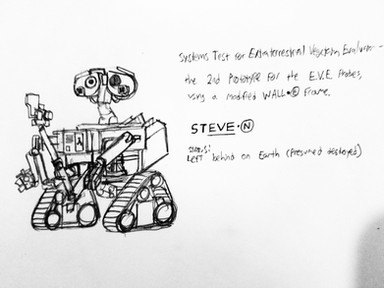 Systems Test for Extraterrestrial Vegetation Evaluator -
the 2nd Prototype for the E.V.E Probes,
using a modified WALL•Ⓔ Frame.
STEVE•Ⓝ
Status:
Left behind on Earth (Presumed destroyed)